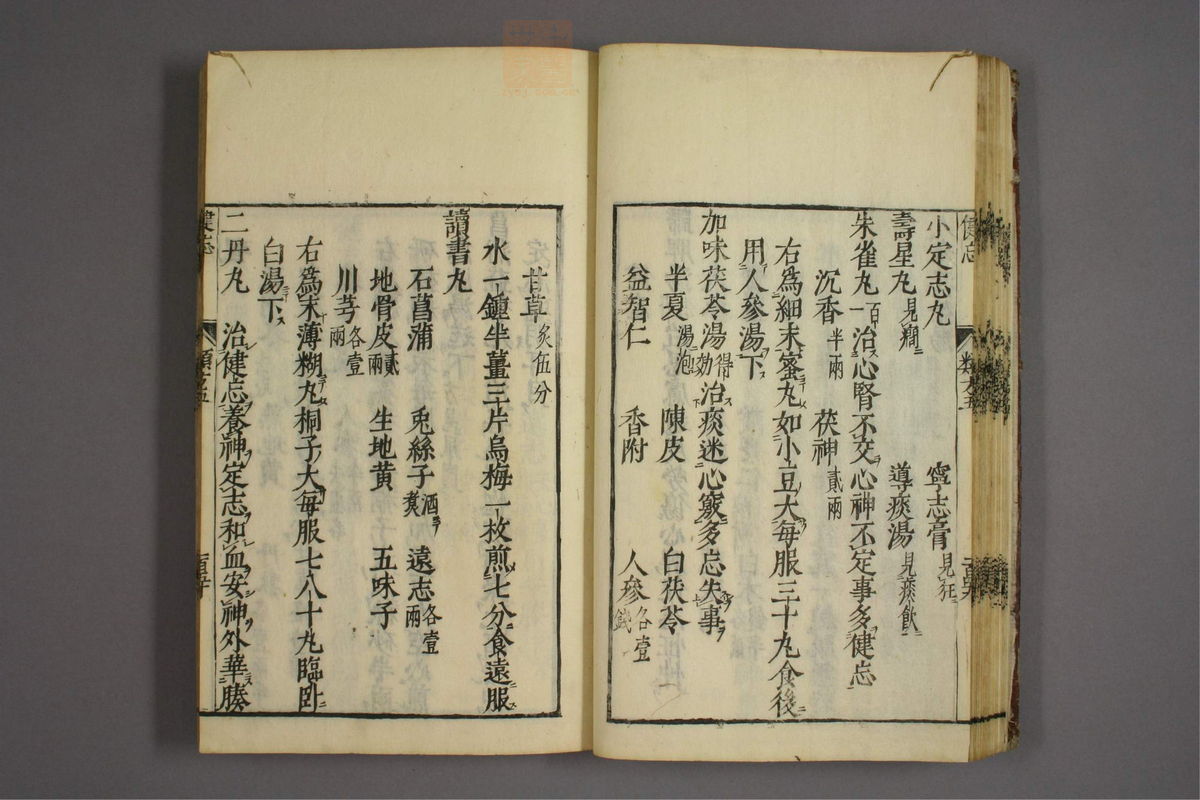 小定志丸　寧志膏見狂
壽星丸見癎　導痰湯見痰飲
朱雀丸一百治心腎不交心神不定事多健忘
沉香半兩　茯神貳兩
右爲細末蜜丸如小豆大每服三十丸食後
用人參湯下
加味茯苓湯得効治痰迷心竅多忘失事
半夏湯泡　陳皮　白茯苓
益智仁　香附　人參各壹錢
甘草炙伍分
水一鍾半薑三片烏梅一枚煎七分食遠服
讀書丸
石菖蒲　兎絲子酒煑　遠志各壹兩
地骨皮貳兩　生地黄　五味子
川芎各壹兩
右爲末薄糊丸桐子大每服七八十丸臨卧
白湯下
二丹丸　治健忘養神定志和血安神外華腠
健忘